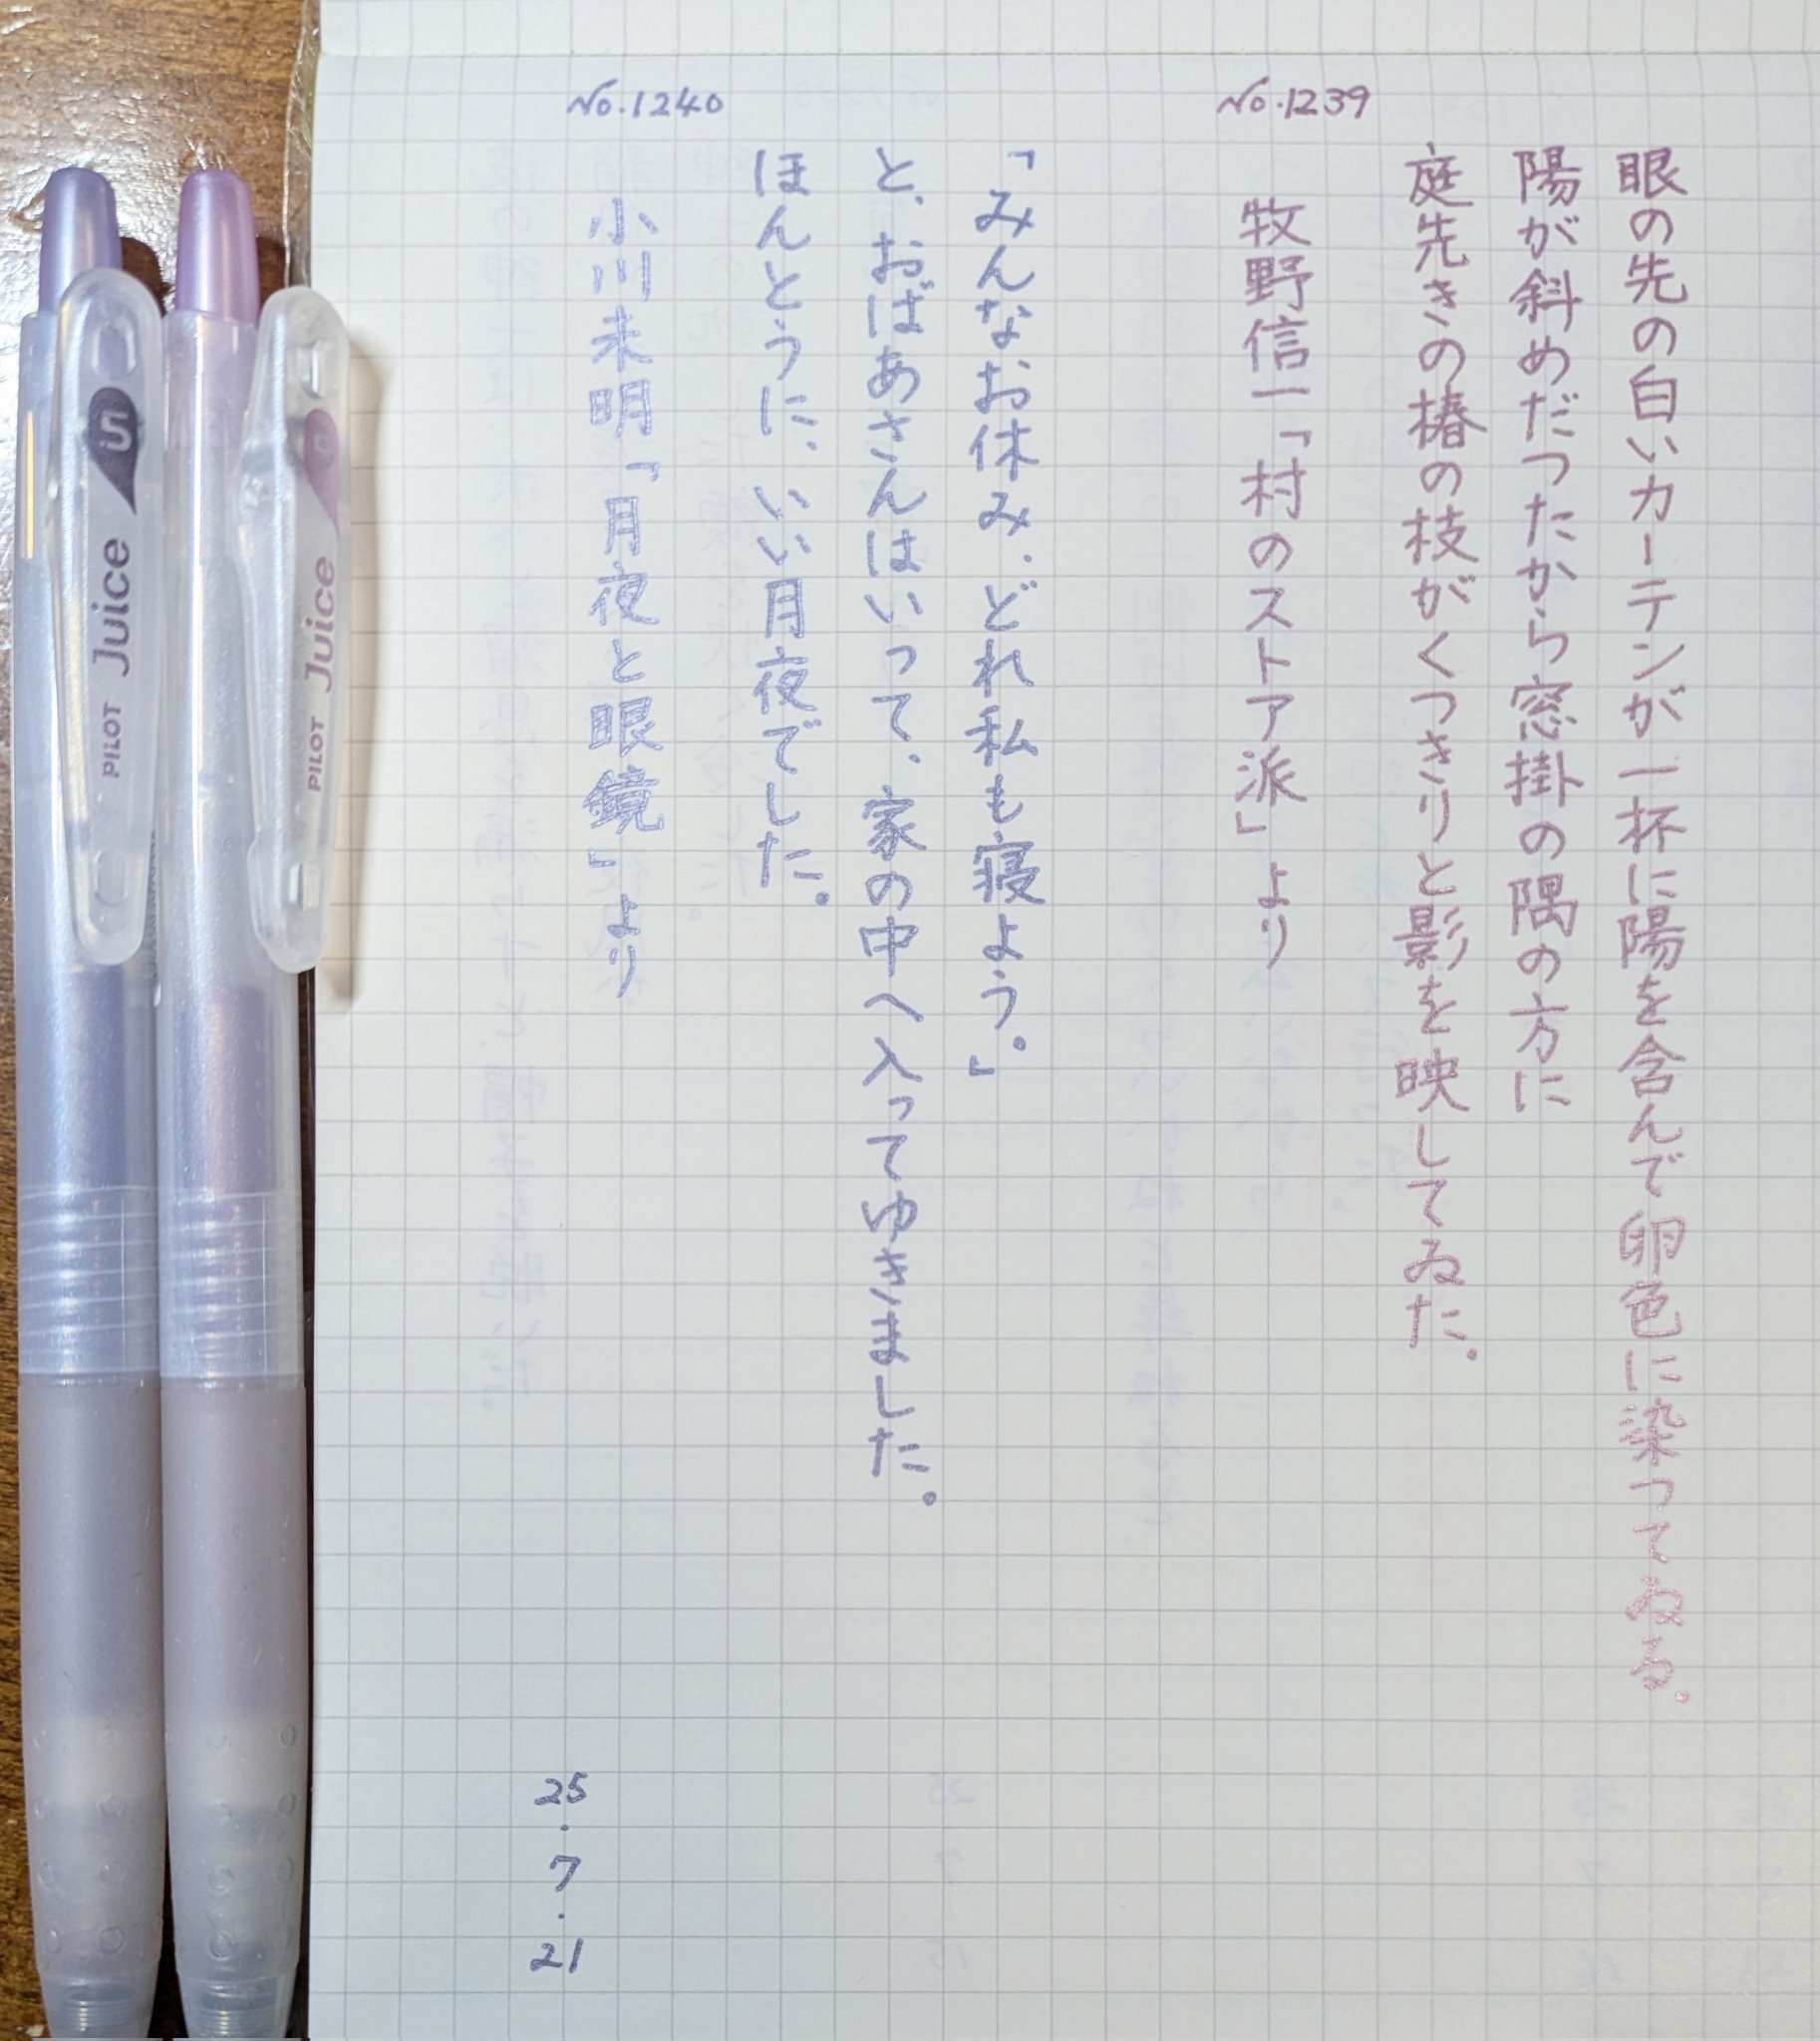 No.1239
眼の先の白いカーテンが一杯に陽を含んで卵色に染つてゐる。
陽が斜めだつたから窓掛の隅の方に
庭先きの椿の枝がくつきりと影を映してゐた。
牧野信一「村のストア派」より
No.1240
「みんなお休み、どれ私も寝よう。」
と、おばあさんはいって、家の中へ入ってゆきました。
ほんとうに、いい月夜でした。
小川未明「月夜と眼鏡」より
25・7・21
PILOT Juice 5
PILOT Juice